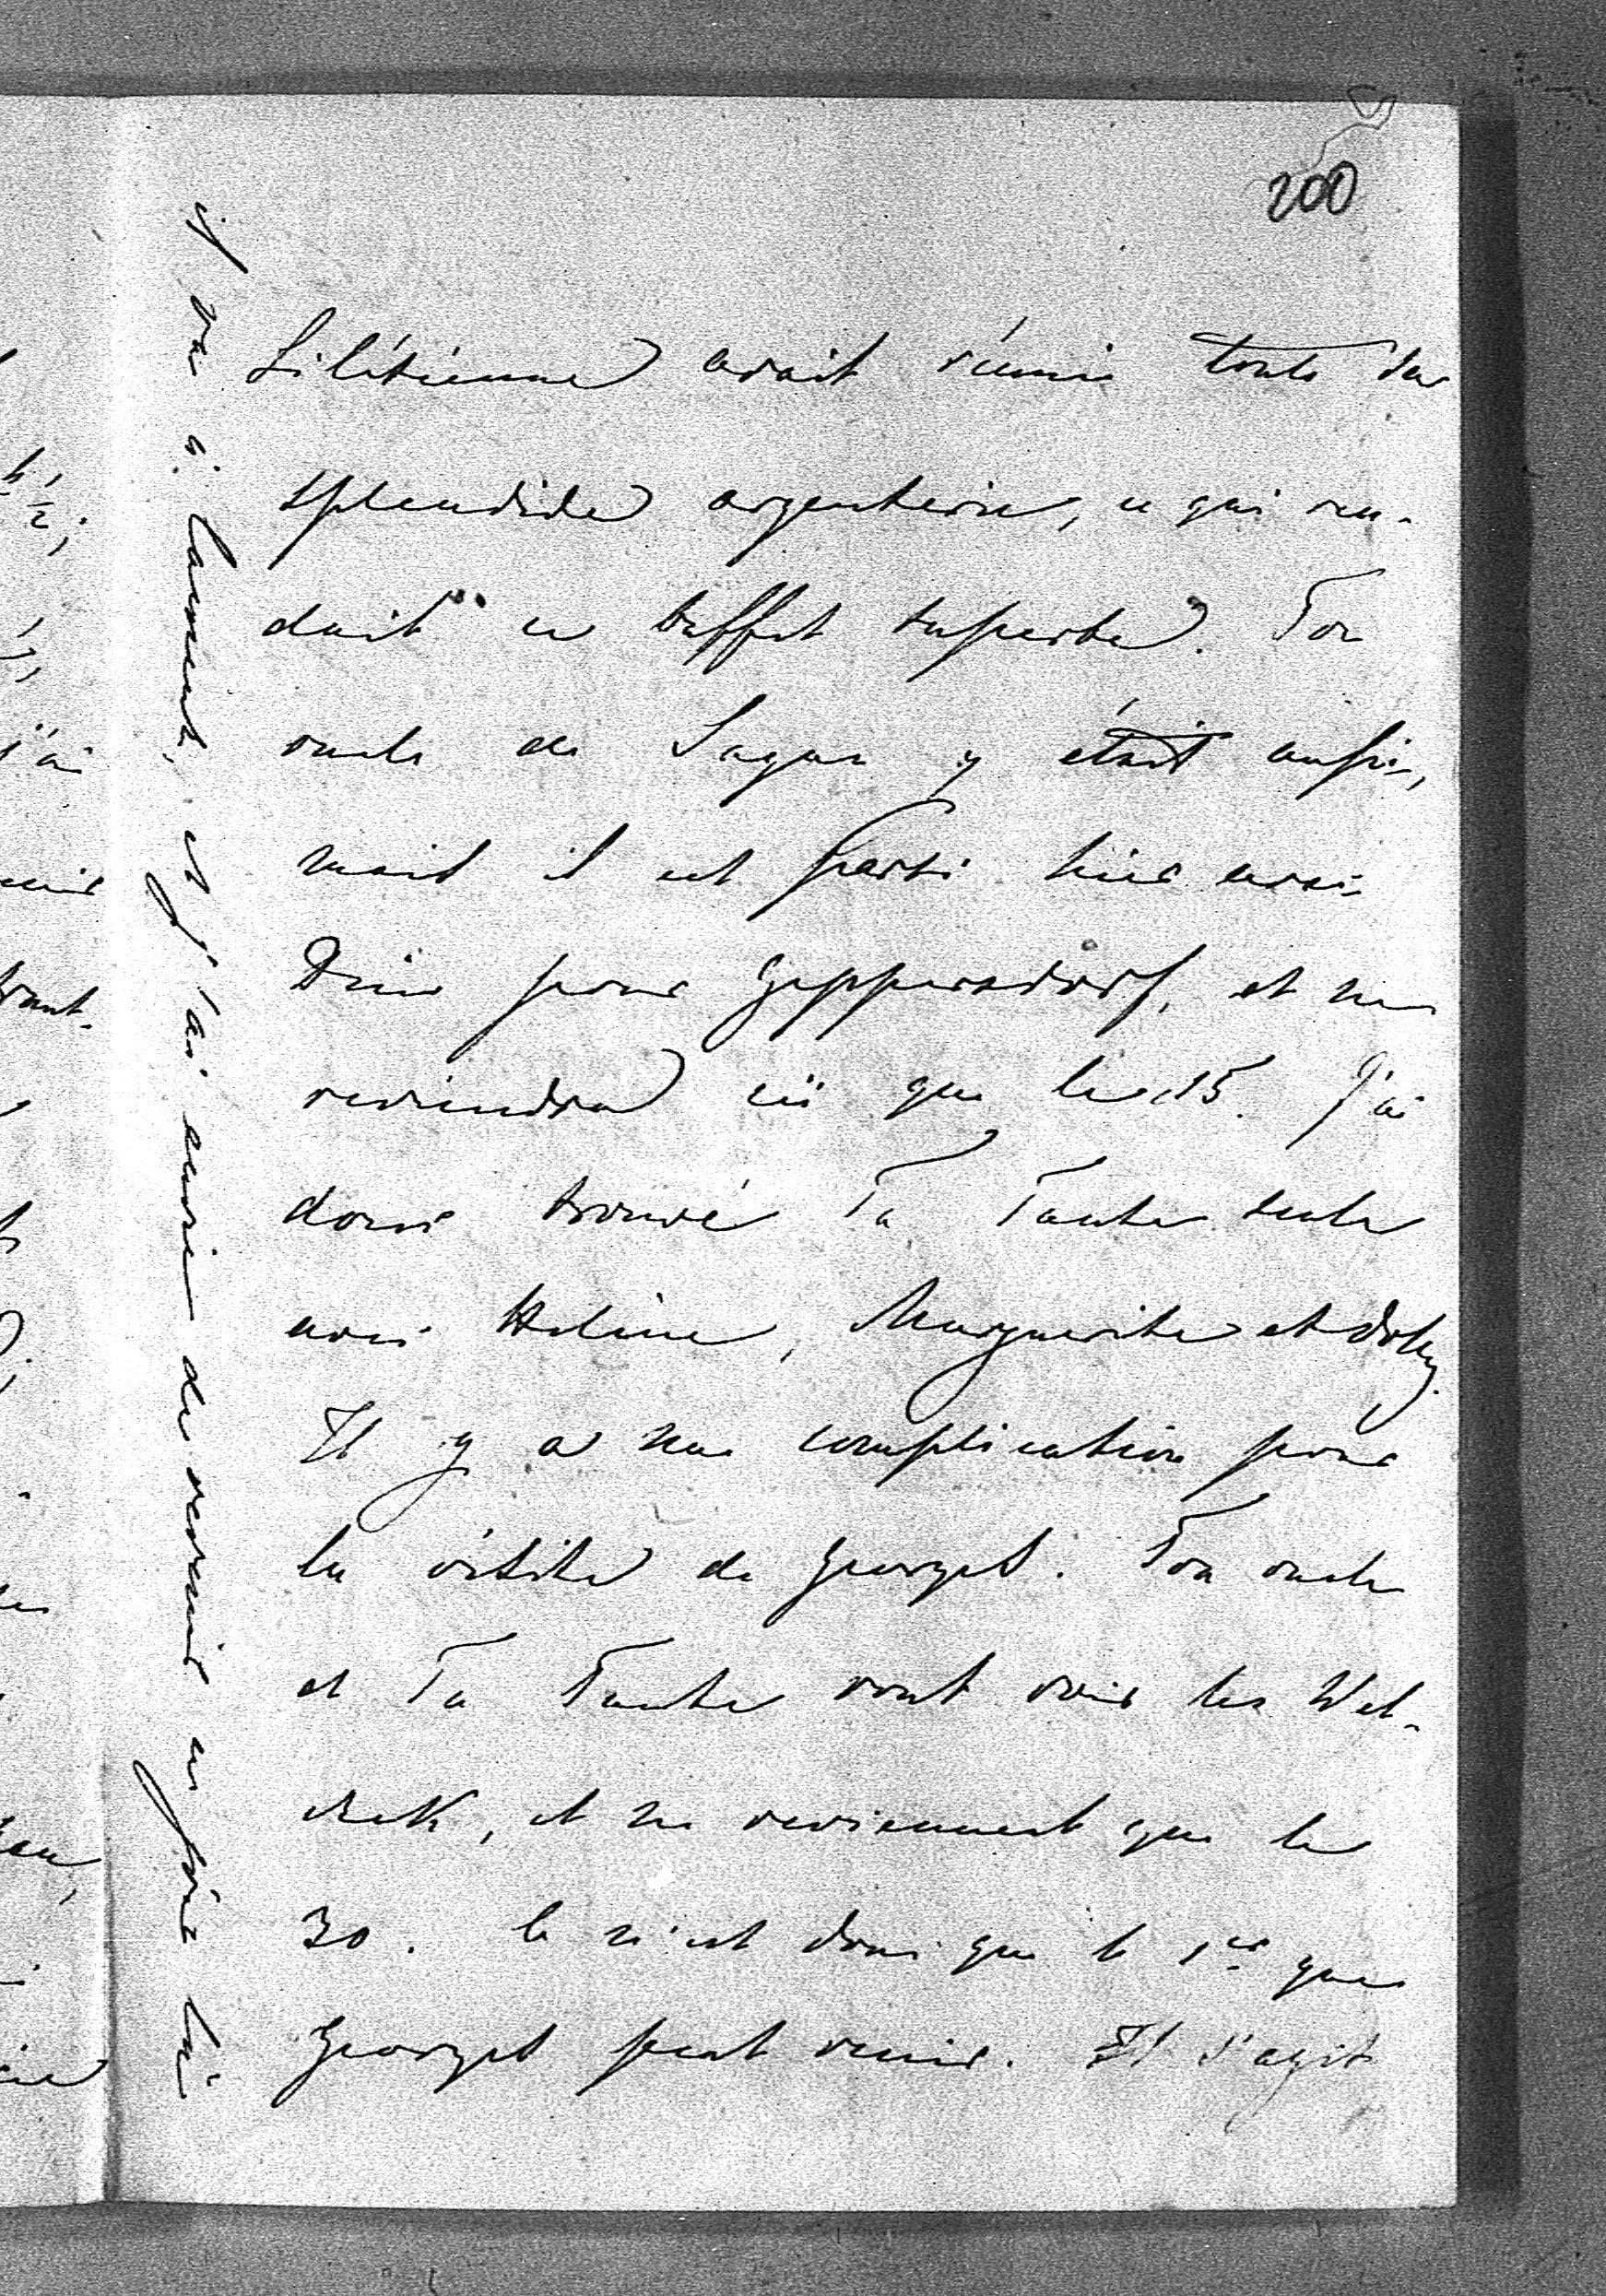 200
Silésienne avait réuni toute sa
splendide argenterie, ce qui ren-
dait ce buffet superbe. Ton
oncle de Sagan y était aussi,
mais il est parti hier avec
Dino pour Geppersdorf, et ne
reviendra ici que le 15. J'ai
donc trouvé Ta Tante seule
avec Hélène, Marguerite et Dolly.
Il y a une complication pour
la visite de Georges. Ton oncle
et Ta Tante vont voir les Wal-
, et ne reviennent que le
30. Ce n'est donc que le 1er que
Georges peut venir. Il s'agit
et j'ai envie de revenir en faire